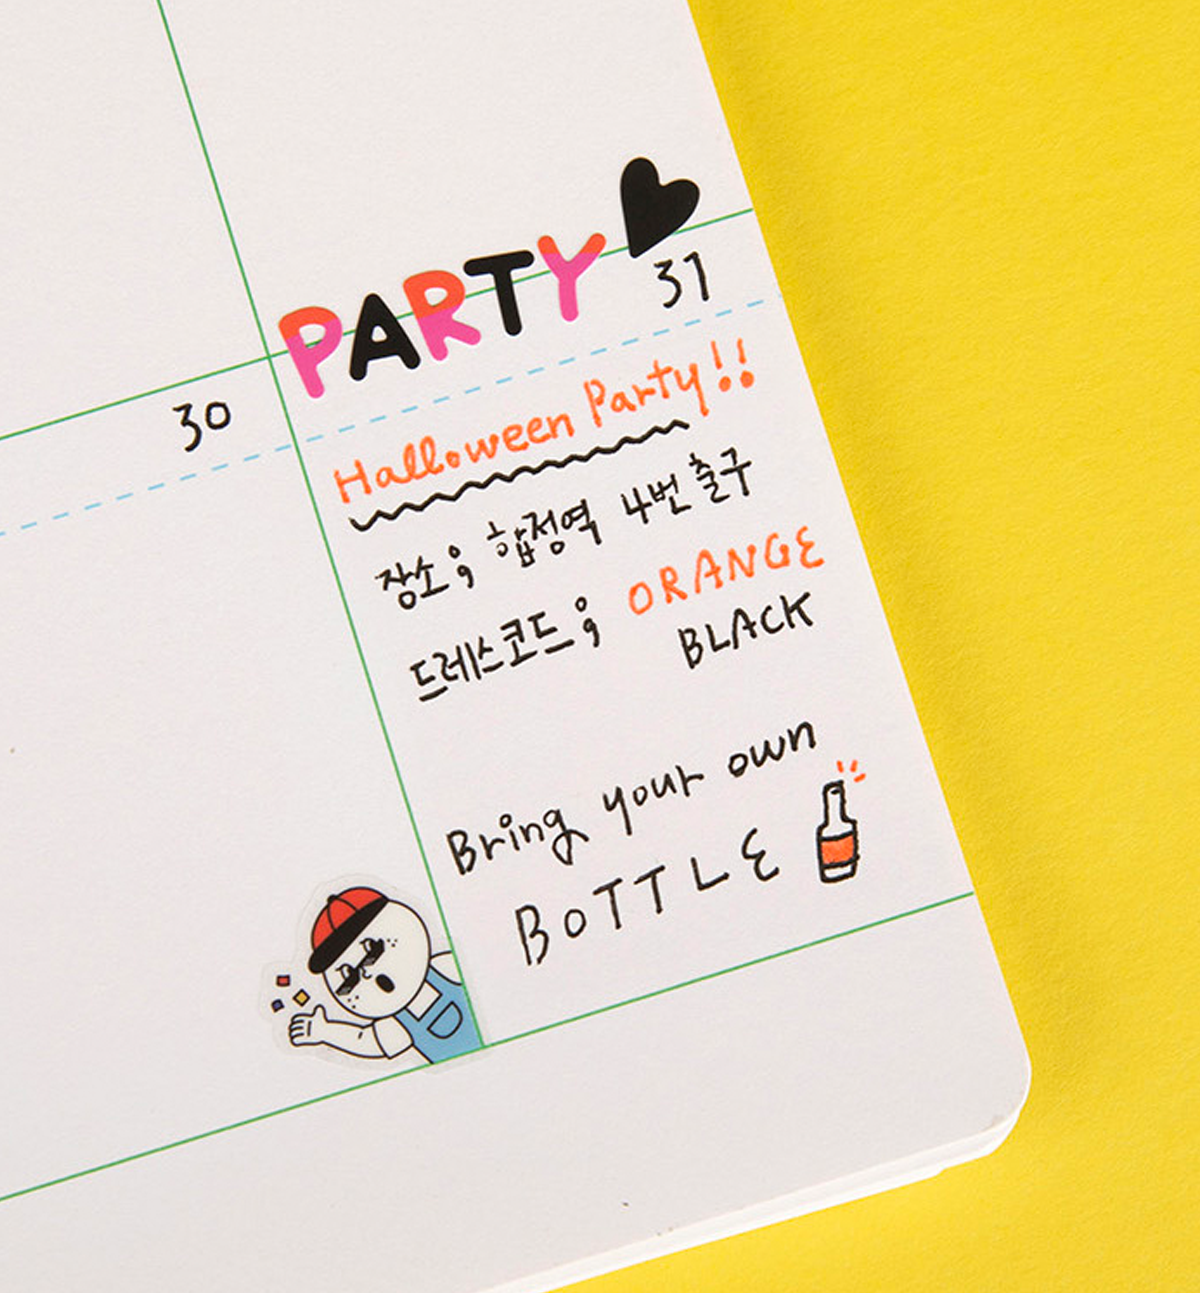 PARTY
31
30
Halloween Party!!
장소; 합정역 4번 출구
드레스코드; ORANGE
BLACK
Bring your own
BOTTLE